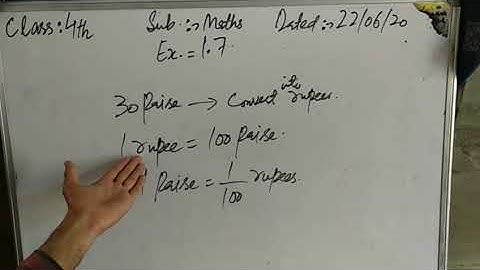 Class:4th Sub:-:Maths Dated:-:22/06/20
Ex.=1.7
30 Paise → Convert into rupees.
1 rupee = 100 Paise.
Paise = 1/100 rupees.